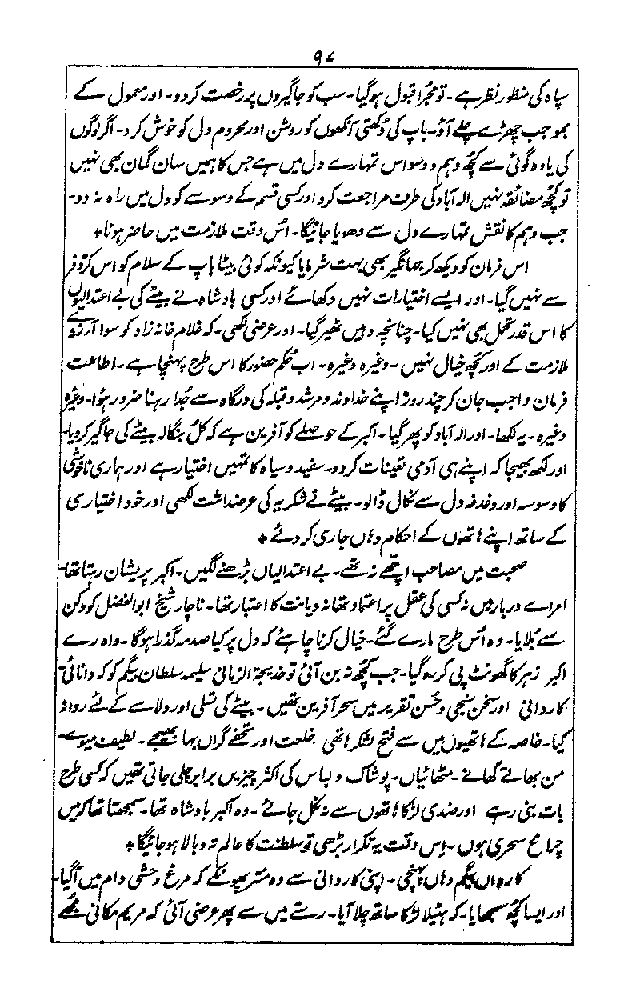 ۹۷
سپاہ کی منظور نظر ہے۔ تو مجرا قبول ہو گیا۔ سب کو جاگیروں پر رخصت کر دو۔ اور معمول کے
بموجب چھڑے چلے آؤ۔ باپ کی دُکھتی آنکھوں کو روشن اور محروم دل کو خوش کرو۔ اگر لوگوں
کی یاوہ گوئی سے کچھ وہم و وسواس تمہارے دل میں ہے جس کا ہمیں سان گمان بھی نہیں
تو کچھ مضائقہ نہیں الہ آباد کی طرف مراجعت کرو اور کسی قسم کے وسوسے کو دل میں راہ نہ دو۔
جب وہم کا نقش تمہارے دل سے دھویا جائیگا۔ اُس وقت ملازمت میں حاضر ہونا*
اس فرمان کو دیکھ کر جہانگیر بھی بہت شرمایا کیونکہ کوئی بیٹا باپ کے سلام کو اس کرّوفر
سے نہیں گیا۔ اور ایسے اختیارات نہیں دکھائے اور کسی بادشاہ نے بیٹے کی بے اعتدالیوں
کا اس قدر تحمل بھی نہیں کیا۔ چنانچہ وہیں ٹھیر گیا۔ اور عرضی لکھی۔ کہ غلام خانہ زاد کو سوا آرزوے
ملازمت کے اور کچھ خیال نہیں۔ وغیرہ وغیرہ۔ اب حکم حضور کا اس طرح پہنچا ہے۔ اطاعت
فرمان واجب جان کر چند روز اپنے خداوند و مرشد و قبلہ کی درگاہ سے جُدا رہنا ضرور ہوا۔ وغیرہ
وغیرہ۔ یہ لکھا۔ اور الہ آباد کو پھر گیا۔ اکبر کے حوصلے کو آفرین ہے کہ کُل بنگالہ بیٹے کی جاگیر کر دیا۔
اور لکھ بھیجا کہ اپنے ہی آدمی تعینات کر دو۔ سفید و سیاہ کا تمہیں اختیار ہے اور ہماری ناخوشی
کا وسوسہ اور دغدغہ دل سے نکال ڈالو۔ بیٹے نے شکریہ کی عرضداشت لکھی اور خود اختیاری
کے ساتھ اپنے ہاتھوں کے احکام وہاں جاری کر دئے*
صحبت میں مصاحب اچھے نہ تھے۔ بے اعتدالیاں بڑھنے لگیں۔ اکبر پریشان رہتا تھا۔
امراے دربار میں نہ کسی کی عقل پر اعتماد تھا نہ دیانت کا اعتبار تھا۔ ناچار شیخ ابوالفضل کو دکن
سے بلایا۔ وہ اُس طرح مارے گئے۔ خیال کرنا چاہئے کہ دل پر کیا صدمہ گذرا ہوگا۔ واہ رے
اکبر زہر کا گھونٹ پی کر رہ گیا۔ جب کچھ نہ بن آئی تو خدیجۃ الزمانی سلیمہ سلطان بیگم کو کہ دانائی
کاردانی اور سخن سنجی و حُسن تقریر میں سحر آفرین تھیں۔ بیٹے کی تسلی اور دلاسے کے لئے روانہ
کیا۔ خاصہ کے ہاتھیوں میں سے فتح لشکر ہاتھی خلعت اور تحفے گراں بہا بھیجے۔ لطیف میوے
من بھاتے کھانے۔ مٹھائیاں۔ پوشاک و لباس کی اکثر چیزیں برابر چلی جاتی تھیں کہ کسی طرح
بات بنی رہے اور ضدی لڑکا ہاتھوں سے نہ نکل جائے۔ وہ اکبر بادشاہ تھا۔ سمجھتا تھا کہ میں
چراغ سحری ہوں۔ اِس وقت یہ تکرار بڑھی تو سلطنت کا عالم تہ و بالا ہو جائیگا*
کارداں بیگم وہاں پہنچی۔ اپنی کاردانی سے وہ منتر پھونکے کہ مرغ وحشی دام میں آ گیا۔
اور ایسا کچھ سمجھایا۔ کہ ہٹیلا لڑکا ساتھ چلا آیا۔ رستے میں سے پھر عرضی آئی کہ مریم مکانی مجھے